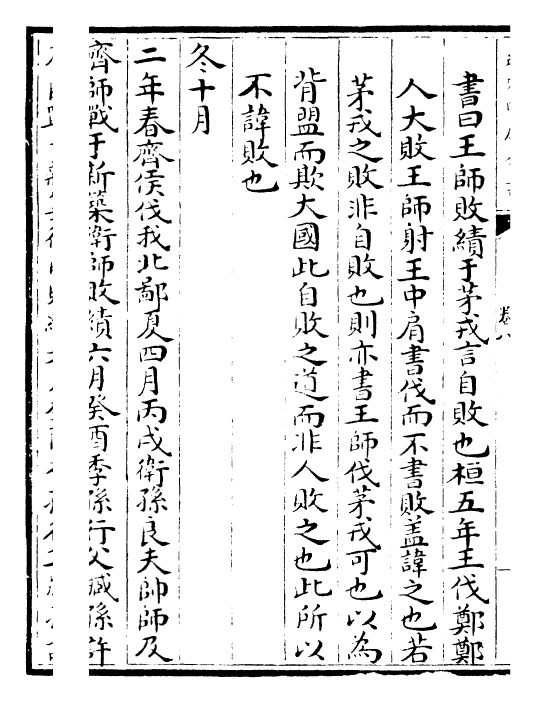 卷八
書曰王師敗績于茅戎言自敗也桓五年王伐鄭鄭
人大敗王師射王中肩書伐而不書敗蓋諱之也若
茅戎之敗非自敗也則亦書王師伐茅戎可也以為
背盟而欺大國此自敗之道而非人敗之也此所以
不諱敗也
冬十月
二年春齊侯伐我北鄙夏四月丙戌衛孫良夫帥師及
齊師戰于新築衛師敗績六月癸酉季孫行父臧孫許